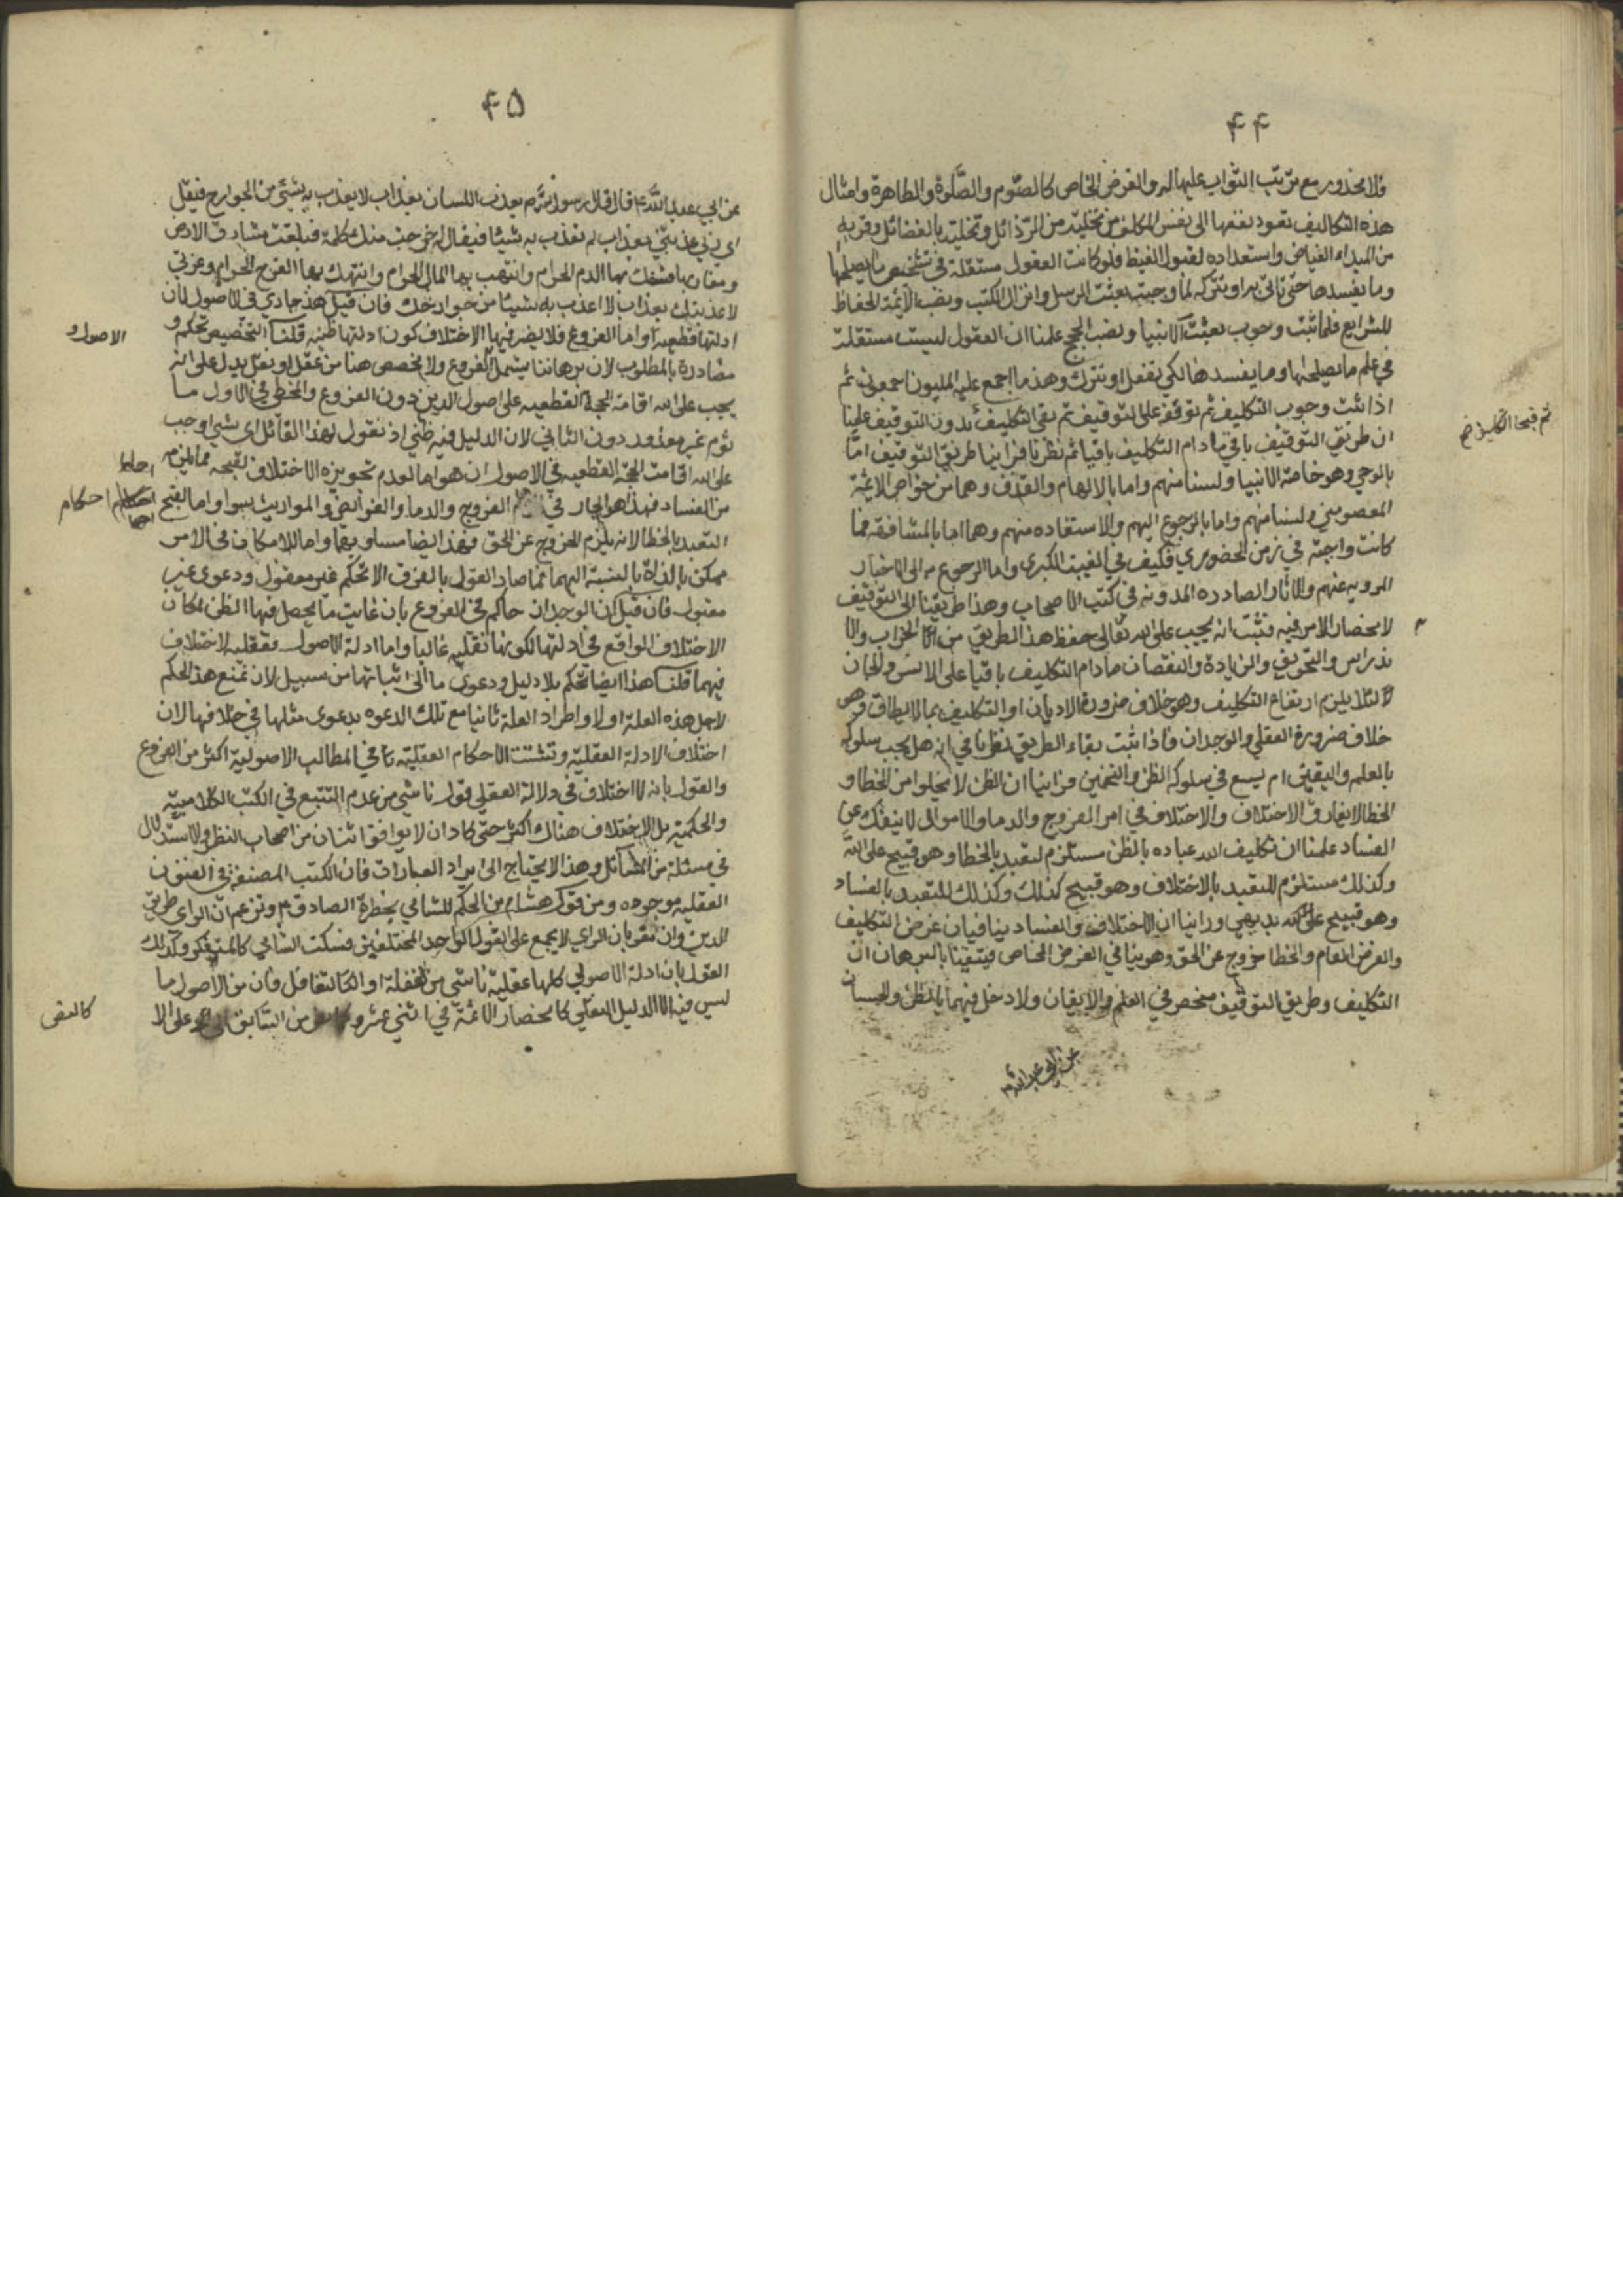 ۴۴
ولا محذور مع ترتب الثواب عليها له والغرض الخاص كالصوم والصلوة والطاهرة وامثال
هذه التكاليف تعود نفعها الى نفس المكلف من تخليته من الرذائل وتحليته بالفضائل وقربه
من المبداء الفياض واستعداده لقبول الفيظ فلو كانت العقول مستقلة في تشخيص ما يصلحها
وما يفسدها حتى تاتي به او تتركه لما وجبت بعثت الرسل وانزال الكتب ونصب الائمة الحفاظ
للشرايع فلما ثبت وجوب بعثت الانبيا ونصب الحجج علمنا ان العقول ليست مستقلة
في علم ما يصلحها وما يفسدها لكي تفعل او تترك وهذ ما اجمع عليه المليون اجمعون ثم
اذا ثبت وجوب التكليف ثم توقفه على التوقيف ثم بقى التكليف بدون التوقيف علمنا
ثم قبح التكليف صح
ان طريق التوقيف باقي مادام التكليف باقيا ثم نظرنا فراينا طريق التوقيف امّا
بالوحي وهو خاصة الانبيا ولسنا منهم واما بالالهام والقذف وهما من خواص الائمة
المعصومين ولسنا منهم واما بالرجوع اليهم والاستفاده منهم وهما اما بالمشافهه فما
كانت واجبة في زمن الحضوري فكيف في الغيبت الكبرى واما الرجوع الى الاخبار
المرويه عنهم والاثار الصادره المدونه في كتب الاصحاب وهذا طريقنا الى التوقيف
لانحصار الامر فيه فثبت انه يجب على الله تعالى حفظ هذا الطريق من الخراب والا
ندراس والتحريف والزيادة والنقصان مادام التكليف باقيا على الانس والجان
لئلا يلزم ارتفاع التكليف وهو خلاف ضرورة الاديان او التكليف بما لا يطاق وهي
خلاف ضرورة العقل والوجدان فاذا ثبت بقاء الطريق نظرنا في انه هل يجب سلوكه
بالعلم واليقين ام يسع في سلوكه الظن والتخمين فراينا ان الظن لا يخلوا من الخطا و
الخطا لا يفارق الاختلاف والاختلاف في امر الفروج والدما والاموال لا ينفك عن
الفساد علمنا ان تكليف الله عباده بالظن مستلزم لتعبد بالخطا وهو قبيح على الله
وكذلك مستلزم للتعبد بالاختلاف وهو قبيح كذلك وكذلك للتعبد بالفساد
وهو قبيح على الله بديهي وراينا ان الاختلاف والفساد ينافيان غرض التكليف
والغرض العام والخطا خروج عن الحق وهو ينافي الغرض الخاص فتيقنا بالبرهان ان
التكليف وطريق التوقيف منحصر في العلم والايقان ولا دخل فيهما بالظن والحسبان
عن ابي عبد الله ع
۴۵
عن ابي عبد الله ع قال قال رسول الله ص يعذب اللسان بعذاب لا يعذب به بشئ من الجوارح فيقل
اي ربي عذبتني بعذاب لم تعذب به شيئا فيقال له خرجت منك كلمة فبلغت مشارق الارض
ومغاربها فسفك بها الدم الحرام وانتهب بها المال الحرام وانتهك بها الفرج الحرام وعزتي
لاعذبنك بعذاب لا اعذب به شيئا من جوارحك فان قيل هذ جاري في الاصول لان
ادلتها قطعيه واما الفروع فلا يضر فيها الاختلاف كون ادلتها ظنيه قلنا التخصيص تحكم و
الاصول و
مصادرة بالمطلوب لان برهاننا يشمل الفروع ولا مخصص هنا من عقل او نقل يدل على انه
يجب على الله اقامة الحجة القطعيه على اصول الدين دون الفروع والمخطي في الاول ما
ثوم غير معذور دون الثاني لان الدليل فيه ظني اذ نقول لهذا القائل اى شي اوجب
على الله اقامت الحجة القطعيه في الاصول ان هو اما لعدم تجويزه الاختلاف لقبحه مما يلزمه
من الفساد فهذا هو الجار في الفروج والدما والفرائض والمواريث بسوا واما القبح
احكام
التعبد بالخطا لانه يلزم الخروج عن الحق فهذ ايضا مساو فيهما واما للامكان في الامر
ممكن بالذات بالنسبة اليهما فما صار القول بالفرق الا تحكم غير معقول ودعوى غير
مقبول فان قيل ان الوجدان حاكم في الفروع بان غايت ما يحصل فيها الظن لمكان
الاختلاف الواقع في ادلتها لكونها نقليه غالبا واما ادلة الاصول فعقليه لا اختلاف
فيهما قلنا هذا ايضا تحكم بلا دليل ودعوى ما الى اثباتها من سبيل لان نمنع هذ الحكم
لاجل هذه العلة اولا واطراد العلة ثانيا مع تلك الدعوه بدعوى مثلها في خلافها لان
اختلاف الادلة العقلية وتشتت الاحكام العقلية تا في المطالب الاصولية اكثر من الفروع
والقول بانه لا اختلاف في دلالة العقلي قول ناشي من عدم التتبع في الكتب الكلامية
والحكمية بل الاختلاف هناك اكثر حتى كاد ان لا يوافق اثنان من اصحاب النظر والاستدلال
في مسئلة من المسائل وهذا لا يحتاج الى ايراد العبارات فان الكتب المصنفة في الفنون
العقليه موجوده ومن قول هشام بن الحكم للشامي بحضرة الصادق ع وتزعم ان الراي طريق
الدين وان تقر بان الراي لا يجمع على القول الواحد المختلفين فسكت الشامي كالمتفكر وكذلك
القول بان ادلة الاصول كلها عقلية ناشي من الغفلة او التغافل فان من الاصول ما
ليس فيه الا الدليل النقلي كانحصار الائمة في اثني عشر من السابق على الا
كالنقى